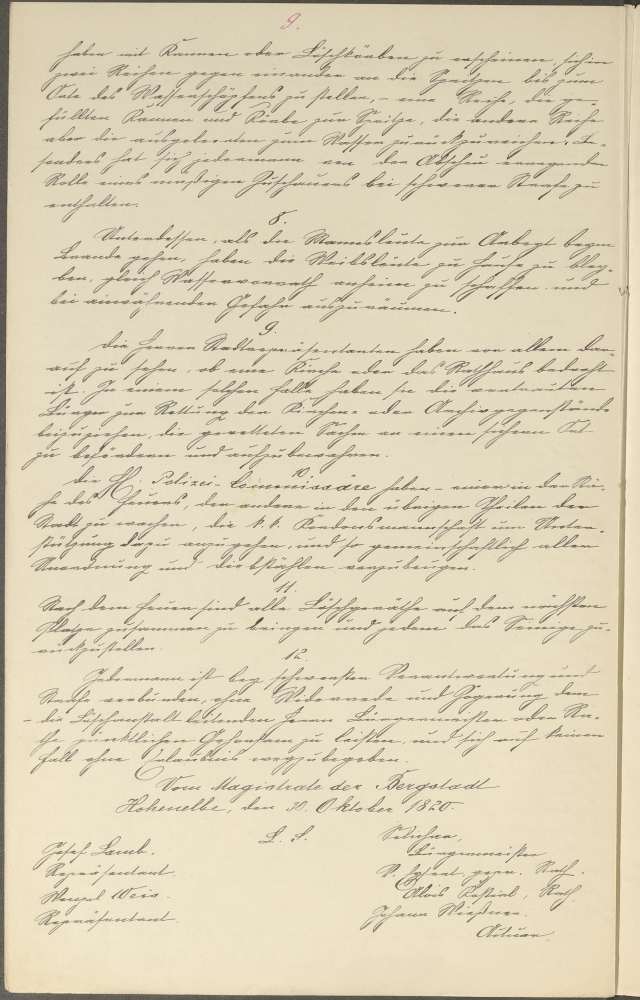 9.
haben mit Kannen oder Löschkörben zu erscheinen, sohin
zwei Reihen gegen einander an die Spritzen bis zum
Orte des Wasserschöpfens zu stellen, – eine Reihe, die ge-
füllten Kannen und Körbe zur Spritze, die andere Reihe
aber die ausgeleerten zum Wasser zurückzureichen. Be-
sonders hat sich jedermann von der Abscheu erregenden
Rolle eines müßigen Zuschauers bei schwerer Strafe zu
enthalten.
8.
Unterdessen, als die Mannsleute zur Arbeit beym
Brande gehen, haben die Weibsleute zu Hause zu blei-
ben, gleich Wasservorrath anheim zu schaffen und
bei annähernder Gefahr auszuräumen.
9.
Die Herren Stadtrepräsentanten haben vor allem dar-
auf zu sehen, ob eine Kirche oder das Rathhaus bedroht
ist. In einem solchen Falle haben sie die vertrauten
Bürger zur Rettung der Kirchen- oder Archivgegenstände
beizuziehen, die geretteten Sachen an einen sichern Ort
zu befördern und aufzubewahren.
10.
Die H. H. Polizei-Commissäre haben – einer in der Nä-
he des Feuers, der andere in den übrigen Theilen der
Stadt zu wachen, die k. k. Kordonsmannschaft um Unter-
stützung dazu anzugehen, und so gemeinschaftlich aller
Unordnung und Diebstählen vorzubeugen.
11.
Nach dem Feuer sind alle Löschgeräthe auf dem nächsten
Platze zusammen zu bringen und jedem das Seinige zu-
rückzustellen.
12.
Jedermann ist bey schwerster Verantwortung und
Strafe verbunden, ohne Widerrede und Zögerung den
– die Löschanstalt leitenden Herrn Bürgermeister oder Rä-
the pünktlichen Gehorsam zu leisten, und sich auf keinen
Fall ohne Erlaubnis wegzubegeben.
Vom Magistrate der Bergstadt
Hohenelbe, den 30. Oktober 1820.
L. S.
Josef Lamb.
Repräsentant.
Wenzel Weis.
Repräsentant.
Bürgermeister
gepr. Rath.
Alois, Rath.
Johann Wießner.
Actuar.